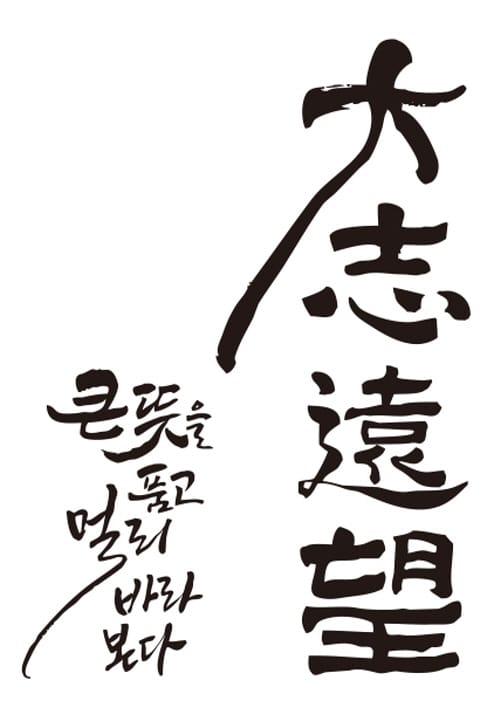 大志遠望
큰뜻을
품고
멀리
바라
본다